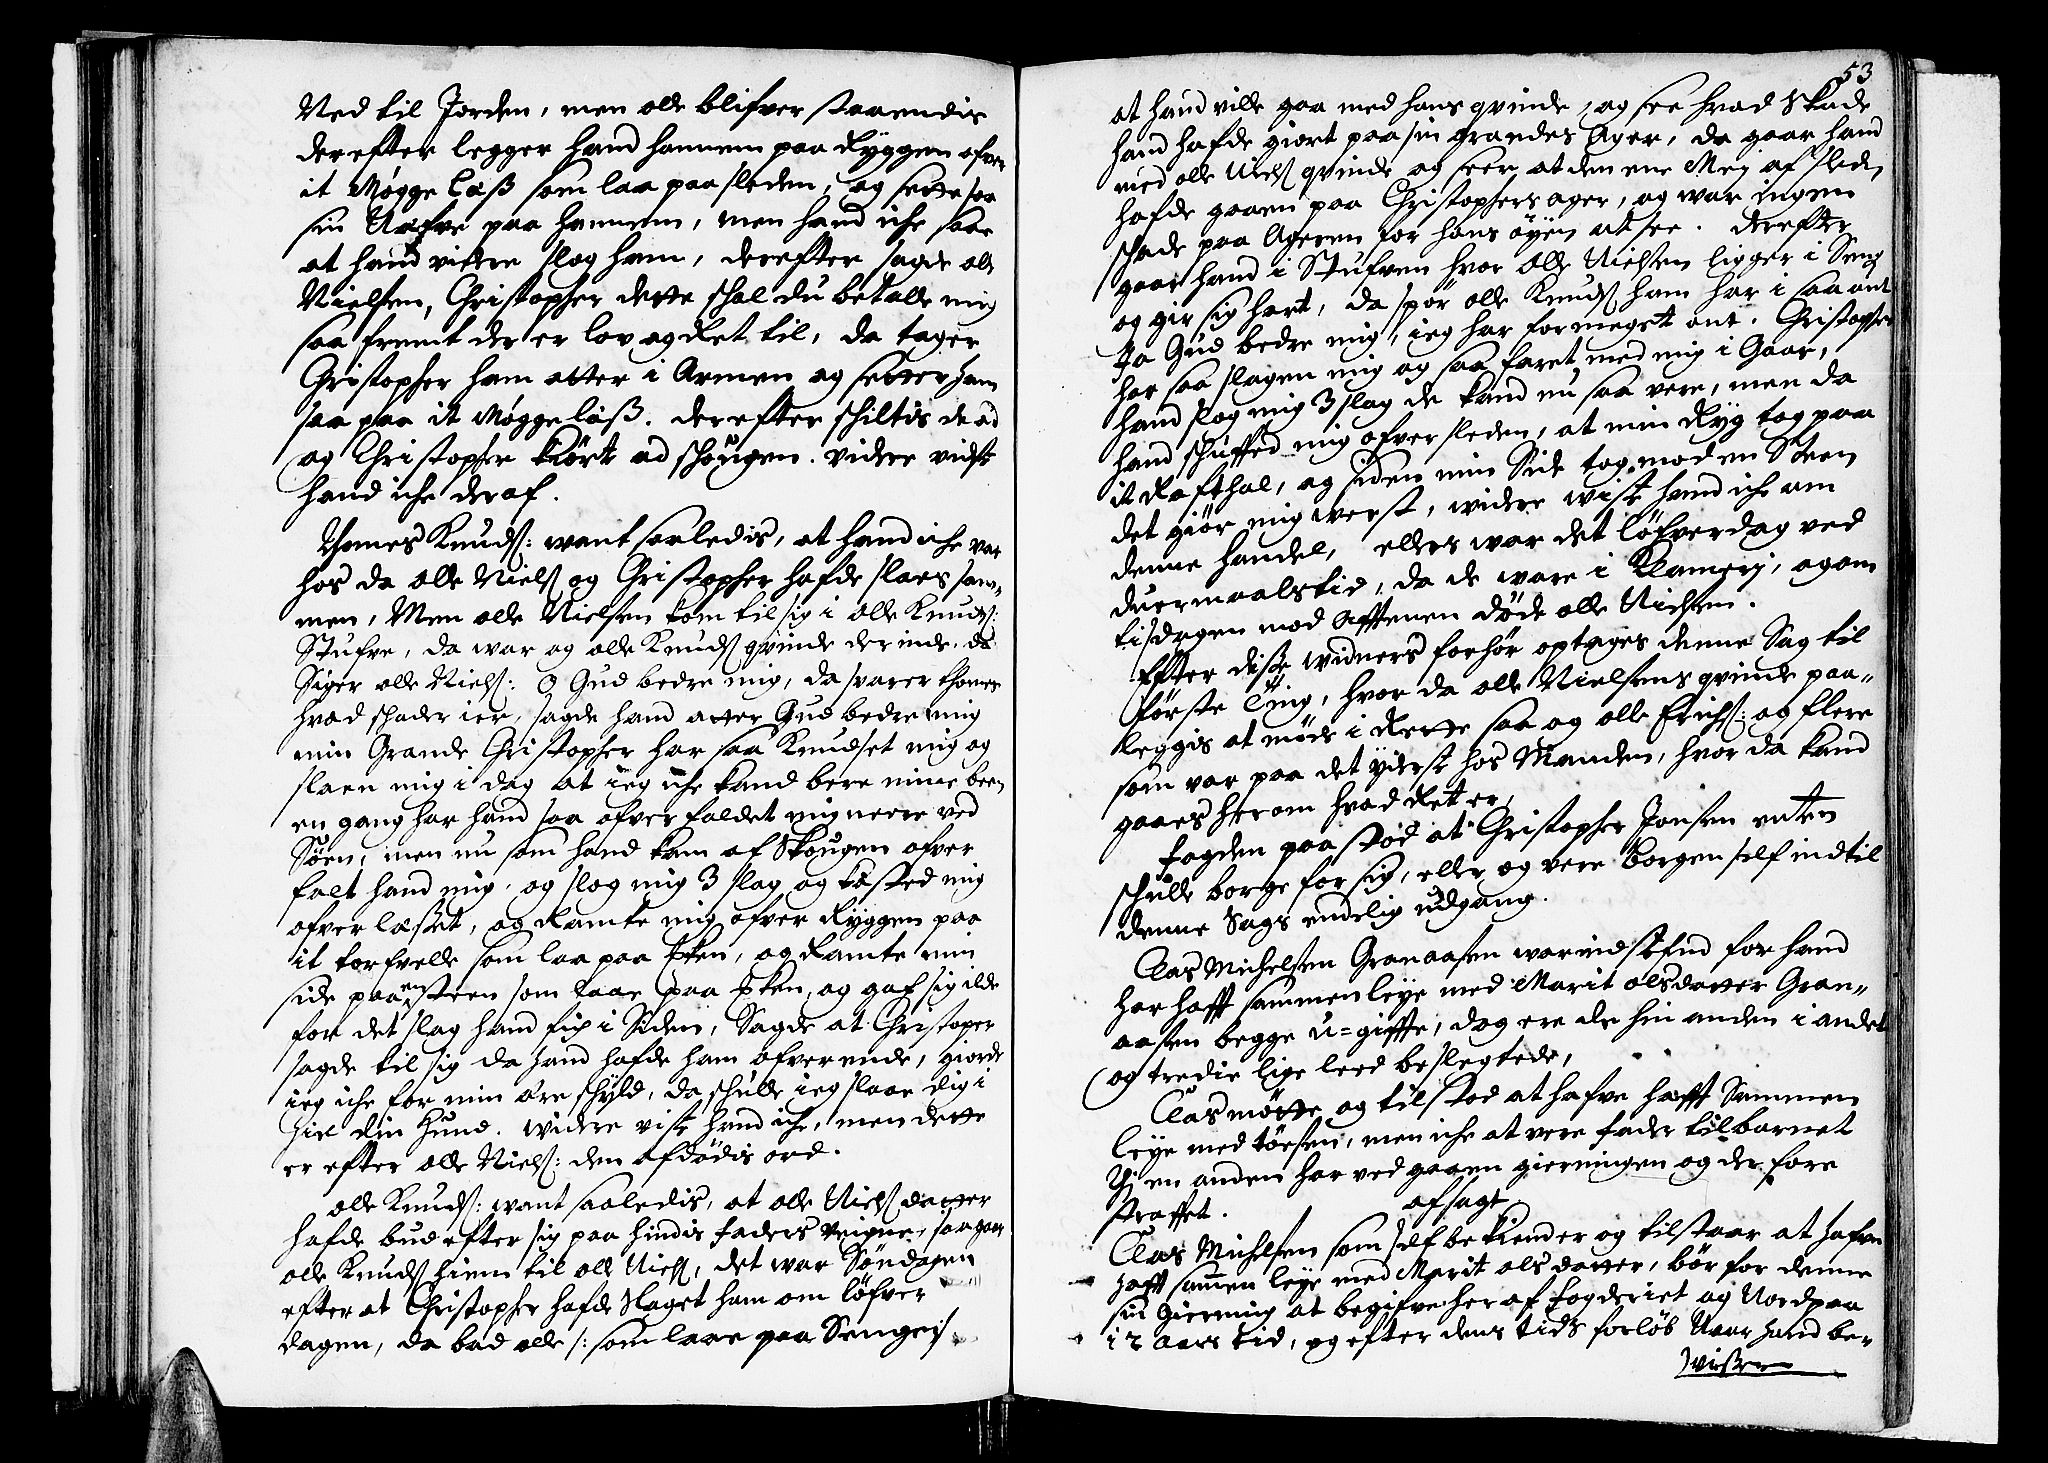 Ned til Jorden, men olle blifver staaendis
derefter legger hand hannem paa Ryggen ofver
it Møgge læss som laa paa sleden, og sette saa
sin Næfve paa hannem, men hand iche saae
at hand videre slog ham, derefter sagde olle
Nielsen, Christopher dette schal du betalle mig
saa fremt der er lov og Ret til, da tager
Christopher ham atter i Armen og setter ham
saa paa it Møggeläss. derefter schiltis de ad
og Christopher kiørte ad schougen. videre vidste
hand iche deraf.
Thomes Knuds: want saaledis, at hand iche var
hos da olle Niels og Christopher hafde slaes sam-
men, Men olle Nielsen kom til sig i olle Knuds:
Stufve, da war og olle Knuds qvinde der inde. da
Siger olle Niels: O Gud bedre mig, da svarer thomes
hvad schader ier, sagde hand atter Gud bedre mig
min Grande Christopher har saa Knudset mig og
slaen mig i dag at ieg iche kand bere mine been
en gang har hand saa ofverfaldet mig neere ved
Søen, men nu som hand kom af Skougen ofver
falt hand mig, og slog mig 3 slag og kasted mig
ofver læsset, og Ramte mig ofver Ryggen paa
it torfvelle som laa paa Eken, og Ramte min
side paa en steen som laae paa Eken, og gaf sig ilde
for det slag hand fik i Siden, Sagde at Christoper
sagde til sig da hand hafde ham ofver ende, giorde
ieg iche for min ære schyld, da schulle ieg slaae dig i
hiel din Hund. Widere viste hand iche, men dette
er efter olle Niels: den afdødis ord.
olle Knuds: want saaledis, at olle Niels datter
hafde bud efter sig paa hindis faders veigne, saa gaar
olle Knuds hiem til olle Niels, det war Søndagen
efter at Christopher hafde Slaget ham om løfver
dagen, da bad olle /: som laae paa Sengen :/
53
at hand ville gaa med hans qvinde, og see hvad Skade
hand hafde giort paa sin grandes Ager, da gaar hand
med olle Niels qvinde og seer at den ene Mei af sleden
hafde gaaen paa Christophers ager, og war ingen
schade paa Ageren for hans øyen at see. derefter
gaar hand i Stufven hvor olle Nielsen ligger i Seng
og gir sig hart, da spør olle Knuds ham har i saa ont
Ja Gud bedre mig, ieg har formegst ont. Christopher
har saa slagen mig og saa faret med mig i Gaar,
hand slog mig 3 slag de kand nu saa vere, men da
hand schuffed mig ofver sleden, at min Ryg tog paa
it Rafthal, og siden min Side tog mod en Steen
det giør mig werst, widere wiste hand iche om
denne handel, ellers war det løfverdag ved
duermaalstid, da de ware i Klameri, og om
tisdagen mod Afftenen døde olle Nielsen.
Efter disse widners forhør optages denne Sag til
første Ting, hvor da olle Nielsens qvinde paa-
leggis at møde i Rette saa og olle Erichs: og flere
som var paa det yderste hos Manden, hvor da kand
gaaes herom hvad Ret er,
fogden paastod at Christopher Jonsen enten
schulle borge for sig, eller og vere borgen self indtil
denne Sags endelig udgang.
Clas Michelsen Granaasen war indstefnd for hand
har hafft sammenleye med Marit olsdatter Gran-
aasen begge u=giffte, dog ere de hin anden i andet
og tredie lige leed beslegtede,
Clas møtte og tilstod at hafve hafft Sammen
leye med tøesen, men iche at vere fader til barnet
thi en anden har ved gaaen gierningen og der fore
straffet. afsagt
Clas Michelsen som self bekiender og tilstaar at hafve
hafft sammen leye med Marit olsdatter, bør for denne
sin Gierning at begifve her af fogderiet og Nordpaa
i 2 aars tid, og efter dens tids forløb Naar hand be-
wiser